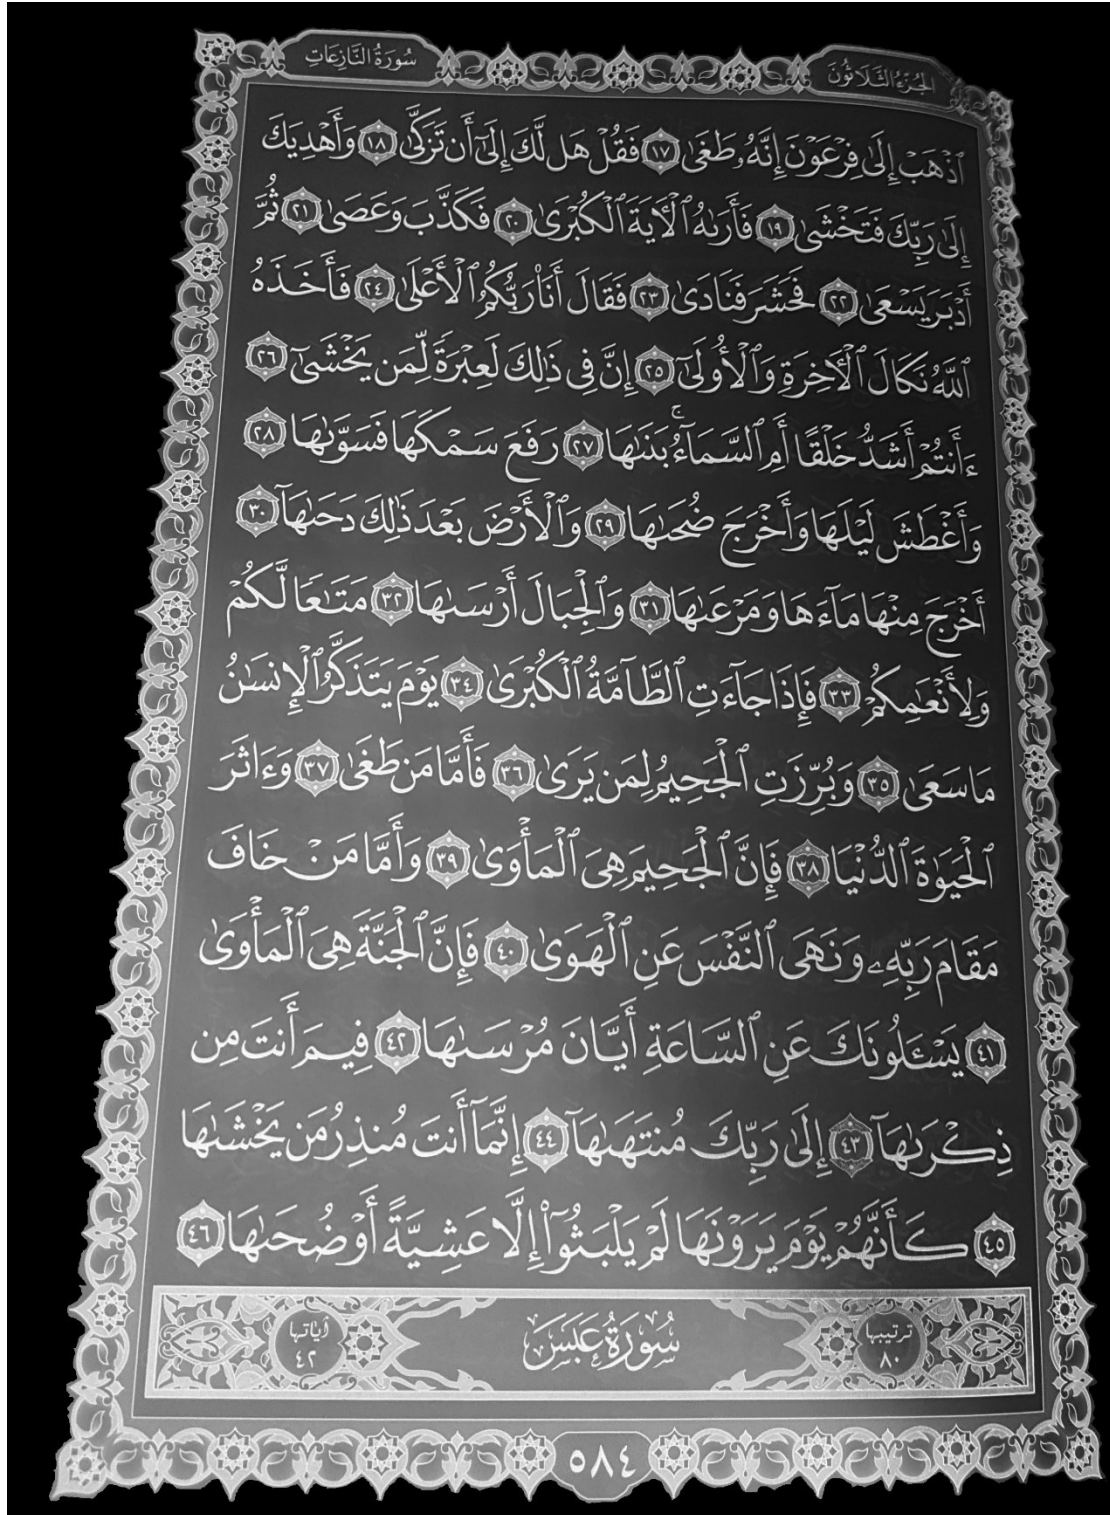 الجُزْءُ الثَّلَاثُونَ
سُورَةُ النَّازِعَاتِ
ٱذْهَبْ إِلَىٰ فِرْعَوْنَ إِنَّهُۥ طَغَىٰ ١٧ فَقُلْ هَل لَّكَ إِلَىٰٓ أَن تَزَكَّىٰ ١٨ وَأَهْدِيَكَ
إِلَىٰ رَبِّكَ فَتَخْشَىٰ ١٩ فَأَرَىٰهُ ٱلْـَٔايَةَ ٱلْكُبْرَىٰ ٢٠ فَكَذَّبَ وَعَصَىٰ ٢١ ثُمَّ
أَدْبَرَ يَسْعَىٰ ٢٢ فَحَشَرَ فَنَادَىٰ ٢٣ فَقَالَ أَنَا۠ رَبُّكُمُ ٱلْأَعْلَىٰ ٢٤ فَأَخَذَهُ
ٱللَّهُ نَكَالَ ٱلْـَٔاخِرَةِ وَٱلْأُولَىٰٓ ٢٥ إِنَّ فِى ذَٰلِكَ لَعِبْرَةً لِّمَن يَخْشَىٰٓ ٢٦
ءَأَنتُمْ أَشَدُّ خَلْقًا أَمِ ٱلسَّمَآءُ ۚ بَنَىٰهَا ٢٧ رَفَعَ سَمْكَهَا فَسَوَّىٰهَا ٢٨
وَأَغْطَشَ لَيْلَهَا وَأَخْرَجَ ضُحَىٰهَا ٢٩ وَٱلْأَرْضَ بَعْدَ ذَٰلِكَ دَحَىٰهَآ ٣٠
أَخْرَجَ مِنْهَا مَآءَهَا وَمَرْعَىٰهَا ٣١ وَٱلْجِبَالَ أَرْسَىٰهَا ٣٢ مَتَـٰعًا لَّكُمْ
وَلِأَنْعَـٰمِكُمْ ٣٣ فَإِذَا جَآءَتِ ٱلطَّآمَّةُ ٱلْكُبْرَىٰ ٣٤ يَوْمَ يَتَذَكَّرُ ٱلْإِنسَـٰنُ
مَا سَعَىٰ ٣٥ وَبُرِّزَتِ ٱلْجَحِيمُ لِمَن يَرَىٰ ٣٦ فَأَمَّا مَن طَغَىٰ ٣٧ وَءَاثَرَ
ٱلْحَيَوٰةَ ٱلدُّنْيَا ٣٨ فَإِنَّ ٱلْجَحِيمَ هِىَ ٱلْمَأْوَىٰ ٣٩ وَأَمَّا مَنْ خَافَ
مَقَامَ رَبِّهِۦ وَنَهَى ٱلنَّفْسَ عَنِ ٱلْهَوَىٰ ٤٠ فَإِنَّ ٱلْجَنَّةَ هِىَ ٱلْمَأْوَىٰ
٤١ يَسْـَٔلُونَكَ عَنِ ٱلسَّاعَةِ أَيَّانَ مُرْسَىٰهَا ٤٢ فِيمَ أَنتَ مِن
ذِكْرَىٰهَآ ٤٣ إِلَىٰ رَبِّكَ مُنتَهَىٰهَآ ٤٤ إِنَّمَآ أَنتَ مُنذِرُ مَن يَخْشَىٰهَا
٤٥ كَأَنَّهُمْ يَوْمَ يَرَوْنَهَا لَمْ يَلْبَثُوٓا۟ إِلَّا عَشِيَّةً أَوْ ضُحَىٰهَا ٤٦
ترتيبها ٨٠ سُورَةُ عَبَسَ آياتها ٤٢
٥٨٤